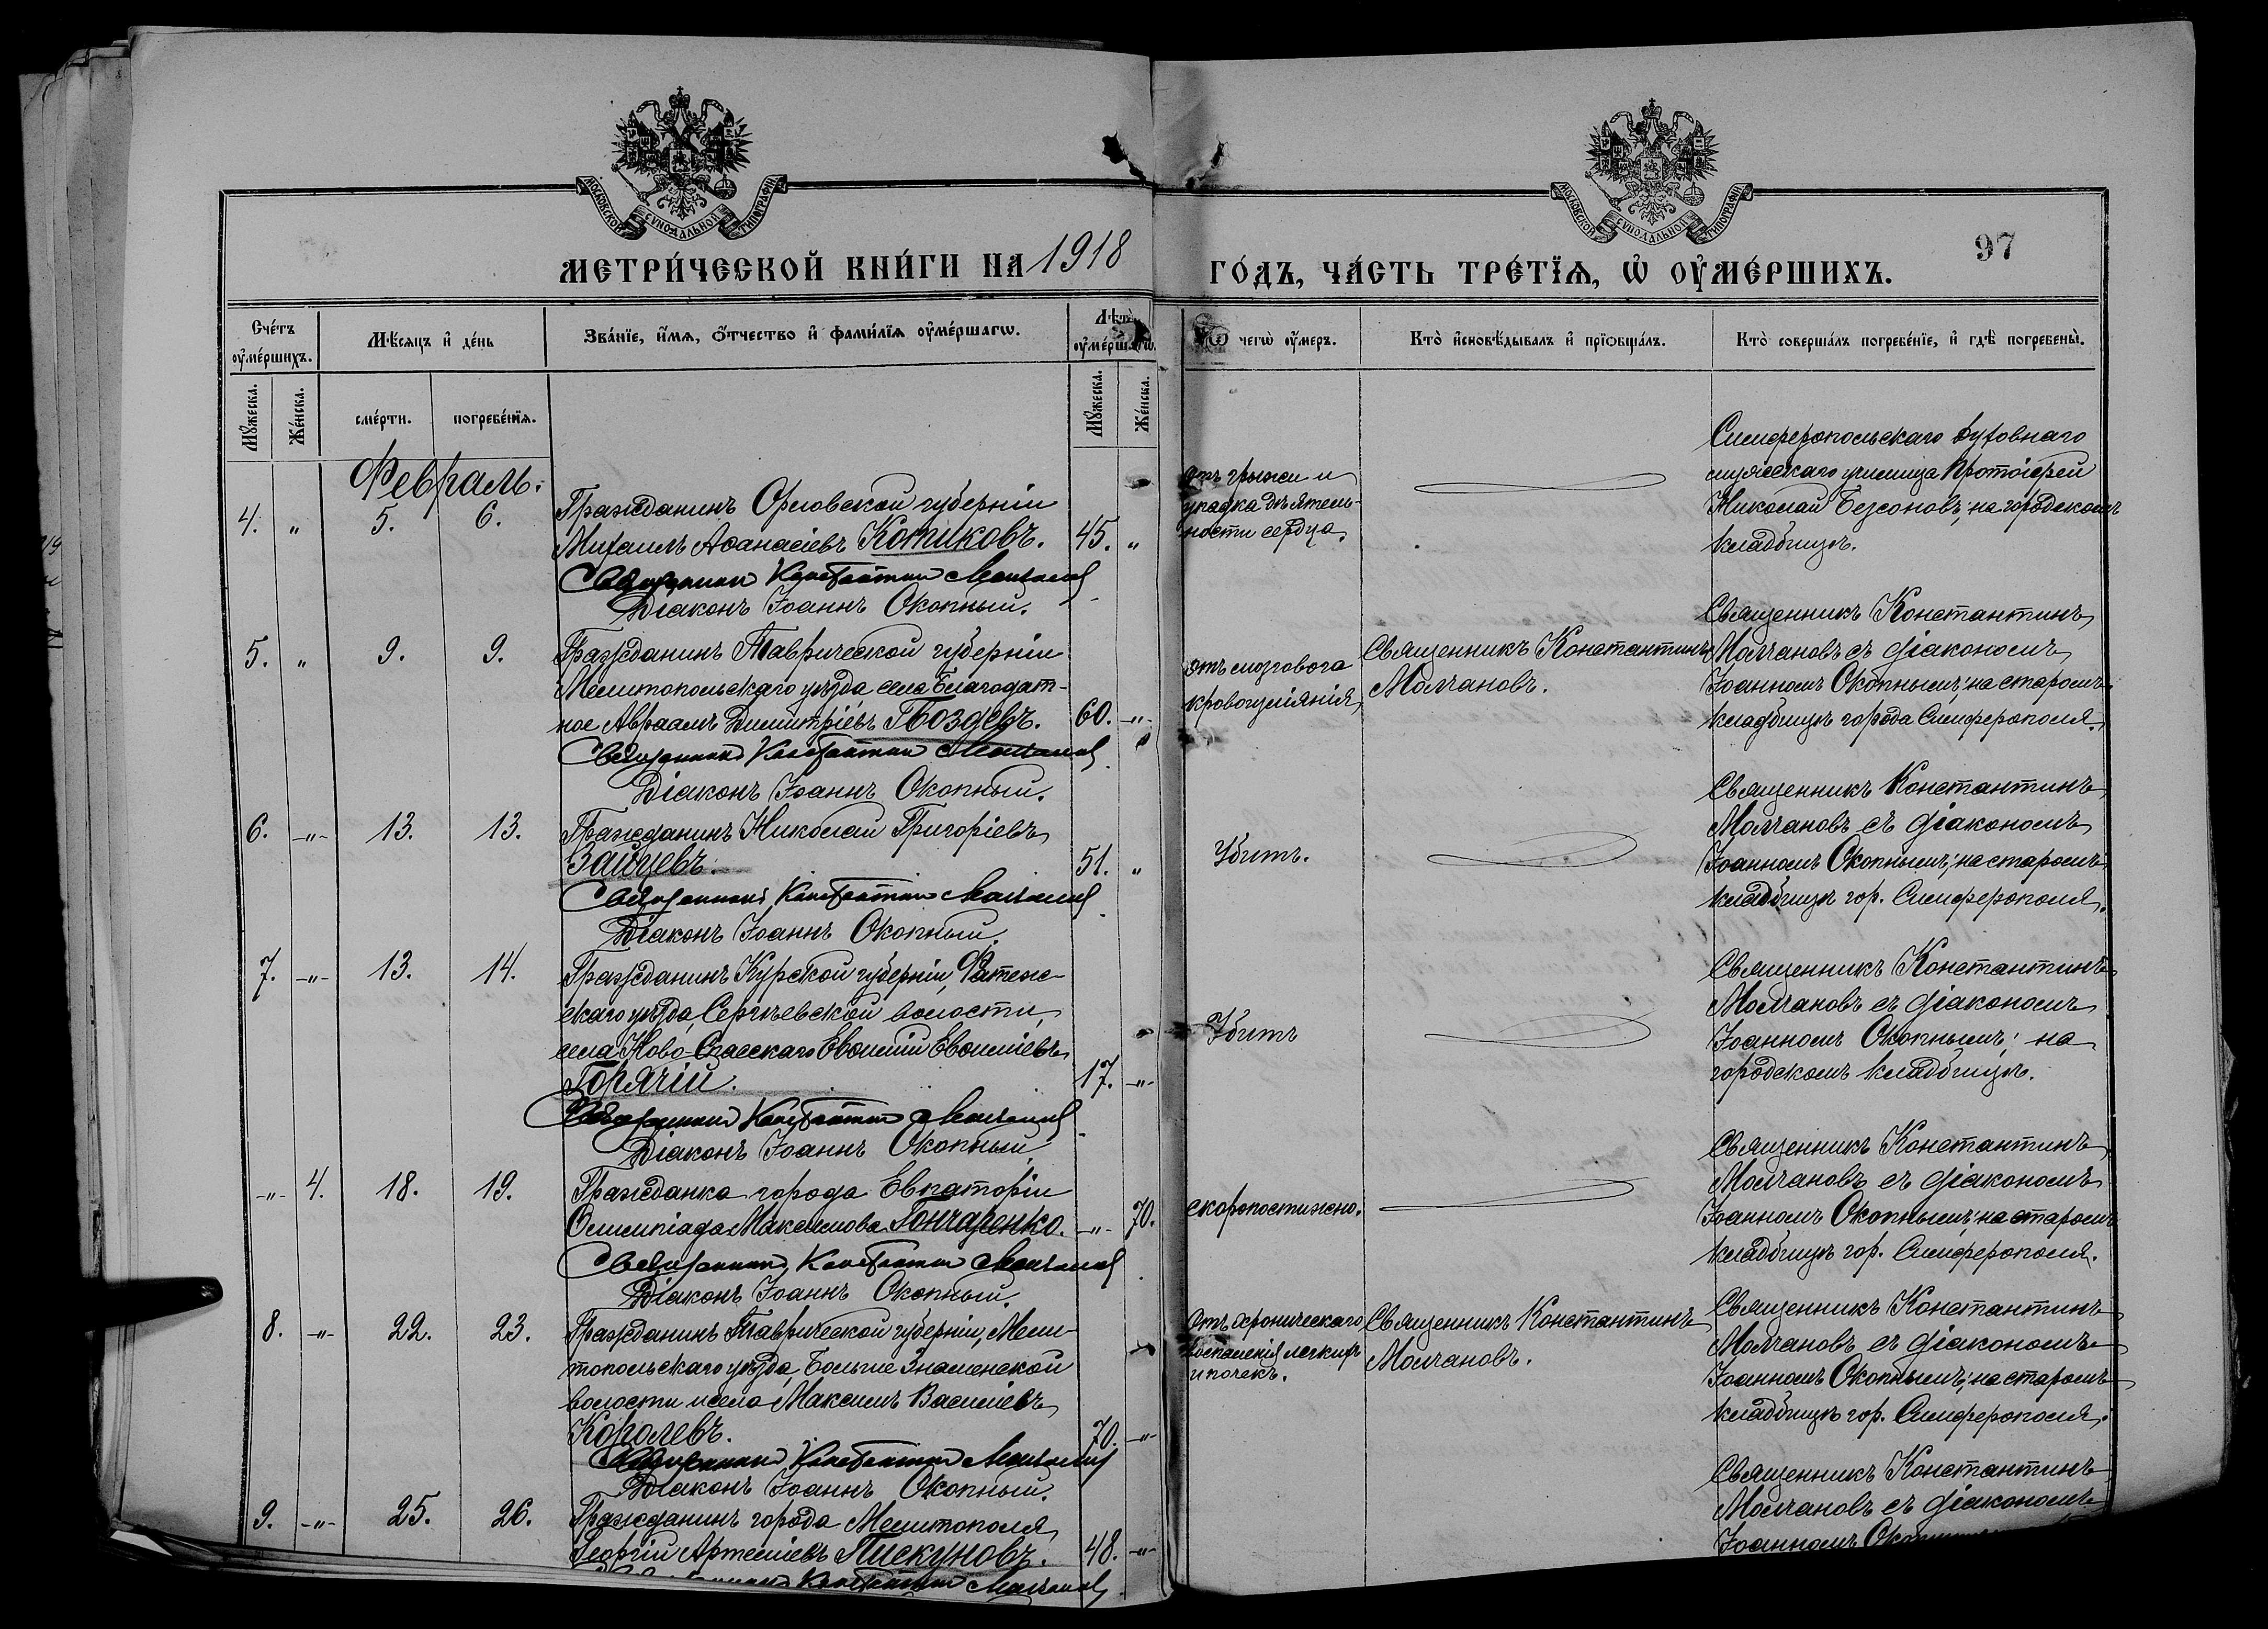 МОСКОВСКОЙ СѴНОДАЛЬНОЙ ТИПОГРАФІИ
МОСКОВСКОЙ СѴНОДАЛЬНОЙ ТИПОГРАФІИ
97
МЕТРИ́ЧЕСКОЙ КНИ́ГИ НА 1918
ГО́ДЪ, ЧА́СТЬ ТРЕ́ТЇѦ, Ѡ҆ ОУ҆МЕ́РШИХЪ.
Сче́тъ оу҆ме́ршихъ.
Мѣ́сяцъ и҆ де́нь
Зва́нїе, и҆́мя, ѻ҆́тчество и҆ фами́лїя оу҆ме́ршагѡ.
Лѣ́та оу҆ме́ршагѡ.
Ѿ чегѡ̀ оу҆́меръ.
Кто̀ и҆сповѣ́дывалъ и҆ прїѡбща́лъ.
Кто̀ соверша́лъ погребе́нїе, и҆ гдѣ̀ погребены̀.
Мꙋ́жеска.
Же́нска.
сме́рти.
погребе́нїя.
Мꙋ́жеска.
Же́нска.
Февраль.
4. " 5. 6.
Гражданинъ Орловской губерніи
Михаилъ Аѳанасіевъ Котиковъ. 45. "
Священникъ Константинъ Молчановъ
Діаконъ Іоаннъ Окопный.
отъ грыжи и
упадка дѣятель-
ности сердца.
Симферопольскаго духовнаго
мужескаго училища Протоіерей
Николай Безсоновъ; на городскомъ
кладбищѣ.
5. " 9. 9.
Гражданинъ Таврической губерніи
Мелитопольскаго уѣзда села Благодат-
ное Авраамъ Димитріевъ Гвоздевъ. 60. -"-
Священникъ Константинъ Молчановъ
Діаконъ Іоаннъ Окопный.
отъ мозгового
кровоизліянія
Священникъ Константинъ
Молчановъ.
Священникъ Константинъ
Молчановъ съ діакономъ
Іоанномъ Окопнымъ; на старомъ
кладбищѣ города Симферополя.
6. -"- 13. 13.
Гражданинъ Николай Григоріевъ
Зайцевъ. 51. "
Священникъ Константинъ Молчановъ
Діаконъ Іоаннъ Окопный.
Убитъ.
Священникъ Константинъ
Молчановъ съ діакономъ
Іоанномъ Окопнымъ; на старомъ
кладбищѣ гор. Симферополя.
7. -"- 13. 14.
Гражданинъ Курской губерніи, Фатеж-
скаго уѣзда, Сергѣевской волости,
села Ново-Спасскаго Евѳимій Евѳиміевъ
Горячій. 17. -"-
Священникъ Константинъ Молчановъ
Діаконъ Іоаннъ Окопный.
Убитъ
Священникъ Константинъ
Молчановъ съ діакономъ
Іоанномъ Окопнымъ; на
городскомъ кладбищѣ.
-"- 4. 18. 19.
Гражданка города Евпаторіи
Олимпіада Максимова Гончаренко. -"- 70.
Священникъ Константинъ Молчановъ
Діаконъ Іоаннъ Окопный.
скоропостижно.
Священникъ Константинъ
Молчановъ съ діакономъ
Іоанномъ Окопнымъ; на старомъ
кладбищѣ гор. Симферополя.
8. -"- 22. 23.
Гражданинъ Таврической губерніи, Мели-
топольскаго уѣзда, Больше Знаменской
волости и села Максимъ Василіевъ
Королевъ. 70. -"-
Священникъ Константинъ Молчановъ
Діаконъ Іоаннъ Окопный.
Отъ хроническаго
воспаленія легкихъ
и почекъ.
Священникъ Константинъ
Молчановъ.
Священникъ Константинъ
Молчановъ съ діакономъ
Іоанномъ Окопнымъ; на старомъ
кладбищѣ гор. Симферополя.
9. -"- 25. 26.
Гражданинъ города Мелитополя
Георгій Артеміевъ Пискуновъ. 48. -"-
Константинъ Молчановъ
Священникъ Константинъ
Молчановъ съ діакономъ
Іоанномъ